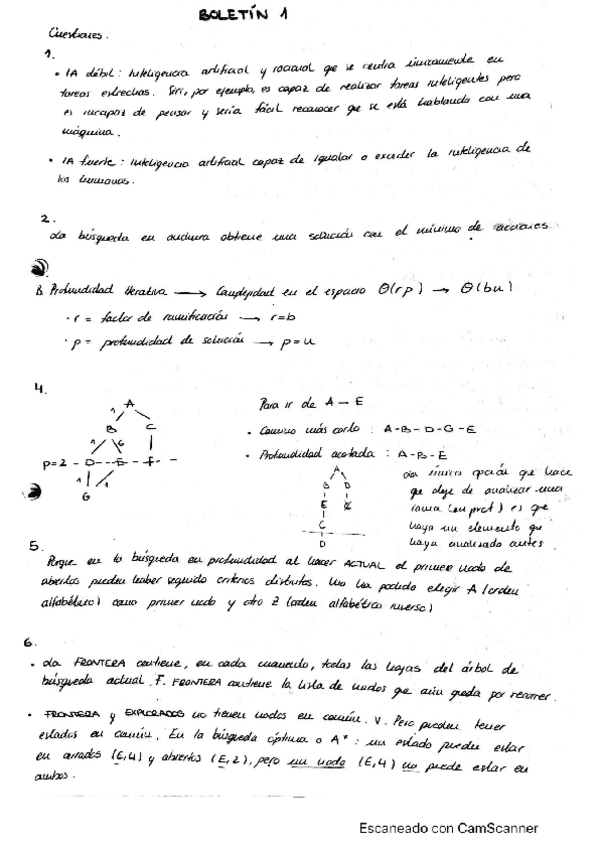 BOLETÍN 1
Cuestiones.
1.
• IA débil: Inteligencia artificial y racional que se centra únicamente en
tareas estrechas. Siri, por ejemplo, es capaz de realizar tareas inteligentes pero
es incapaz de pensar y sería fácil reconocer que se está hablando con una
máquina.
• IA fuerte: inteligencia artificial capaz de igualar o exceder la inteligencia de
los humanos.
2.
La búsqueda en anchura obtiene una solución con el mínimo de acciones.
B. Profundidad iterativa → Complejidad en el espacio Θ(rp) → Θ(bn)
· r = factor de ramificación → r=b
· p = profundidad de solución → p=n
4.
A
1
B C
1 6 1
p=2 - D - - E - - F - -
1 1
G
Para ir de A — E
• Camino más corto : A-B-D-G-E
• Profundidad acotada : A-B-E
A
B D
E
C
D
La única opción que hace
que deje de analizar una
rama (en prof) es que
haya un elemento que
haya analizado antes
5.
Porque en la búsqueda en profundidad al hacer ACTUAL el primer nodo de
abiertos pueden haber seguido criterios distintos. Uno ha podido elegir A (orden
alfabético) como primer nodo y otro Z (orden alfabético inverso)
6.
• La FRONTERA contiene, en cada momento, todas las hojas del árbol de
búsqueda actual. F. FRONTERA contiene la lista de nodos que aún queda por recorrer.
• FRONTERA y EXPLORADOS no tienen nodos en común. V. Pero pueden tener
estados en común. En la búsqueda óptima o A*: un estado puede estar
en cerrados (E,4) y abiertos (E,2), pero un nodo (E,4) no puede estar en
ambos.
Escaneado con CamScanner